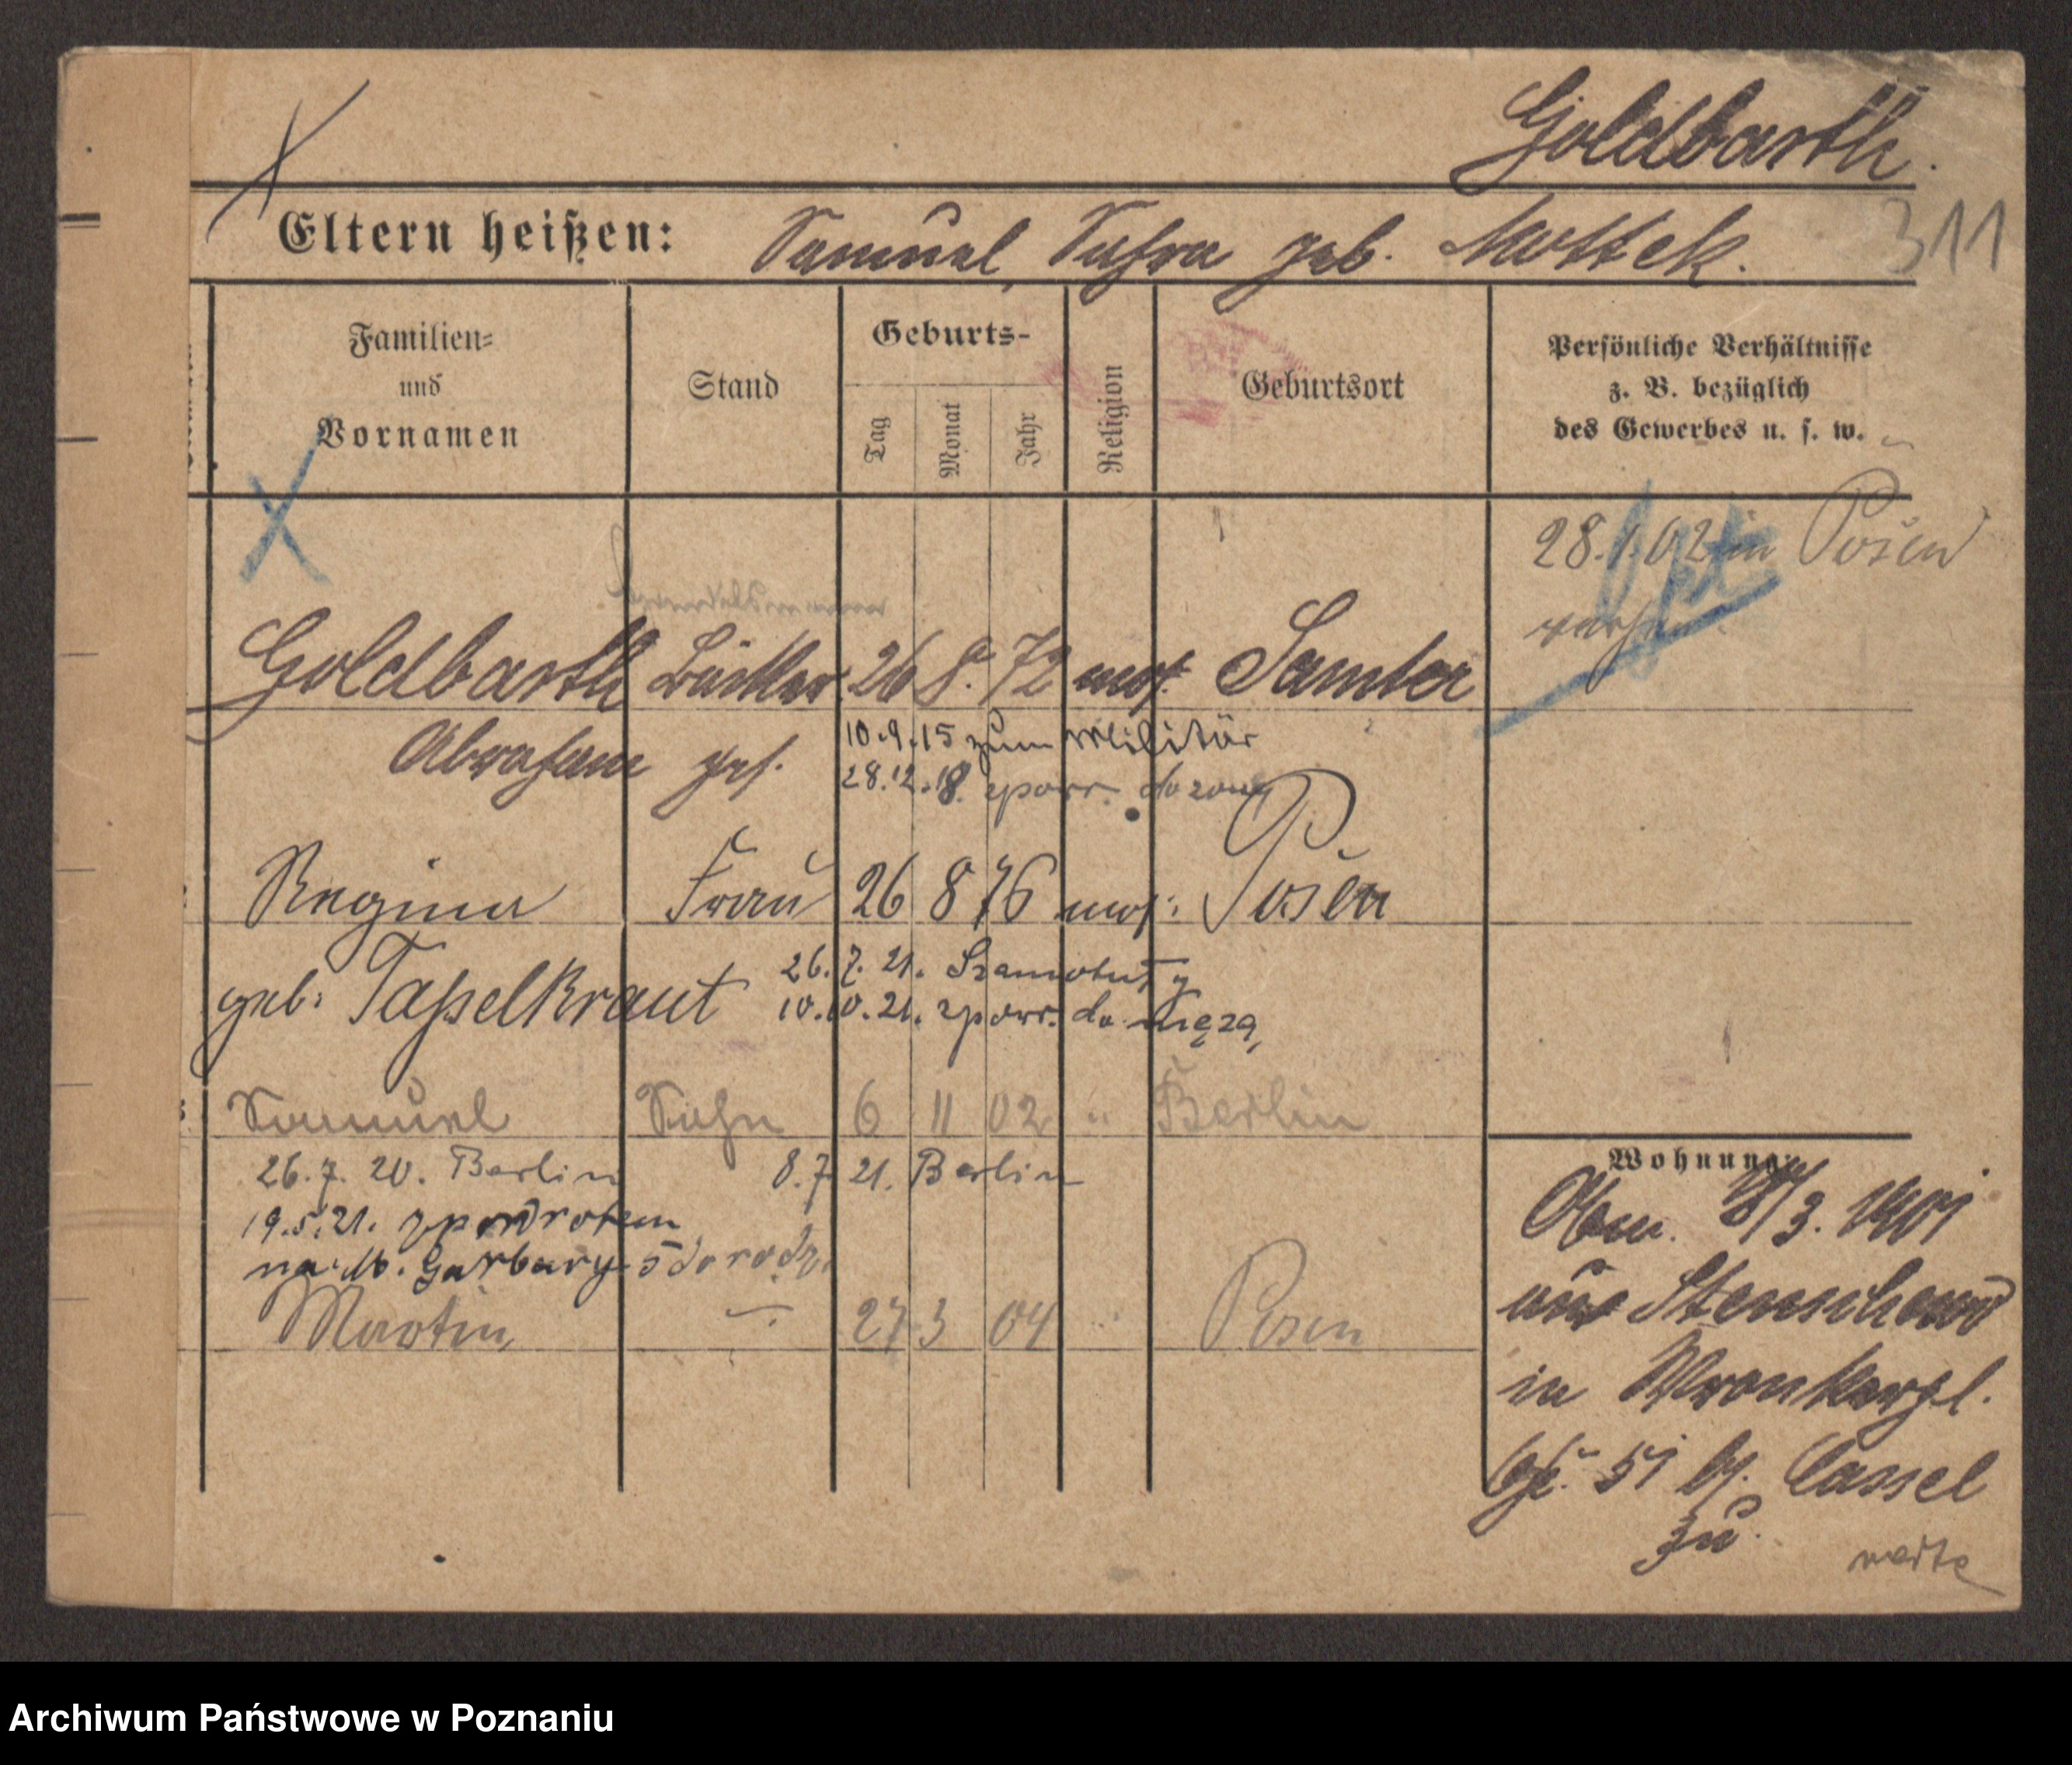 Goldbarth.
Eltern heißen: Samuel, geb. Mottek.
311
Familien=
und
Vornamen
Stand
Geburts-
Tag
Monat
Jahr
Religion
Geburtsort
Persönliche Verhältnisse
z. B. bezüglich
des Gewerbes u. s. w.
28.1.02 in Posen
Handelsmann
Goldbarth 26 8. 72 mos. Samter
Abraham
10.9.15 zum Militär
28.12.18. zpowr. do żony
Regina Frau 26 8 76 mos. Posen
geb. Tasselkraut
26.7.21. Szamotuły
10.10.21. zpowr. do męża
Samuel Sohn 6 11 02 " Berlin
26.7.20. Berlin 8.7.21. Berlin
19.5.21. zpowrotem
na M. Garbary 5 do rodz.
Martin 27 3 04 Posen
Wohnung:
/3. 1901
aus
in Wronkerpl.
51 b. Cassel
zu.
Archiwum Państwowe w Poznaniu